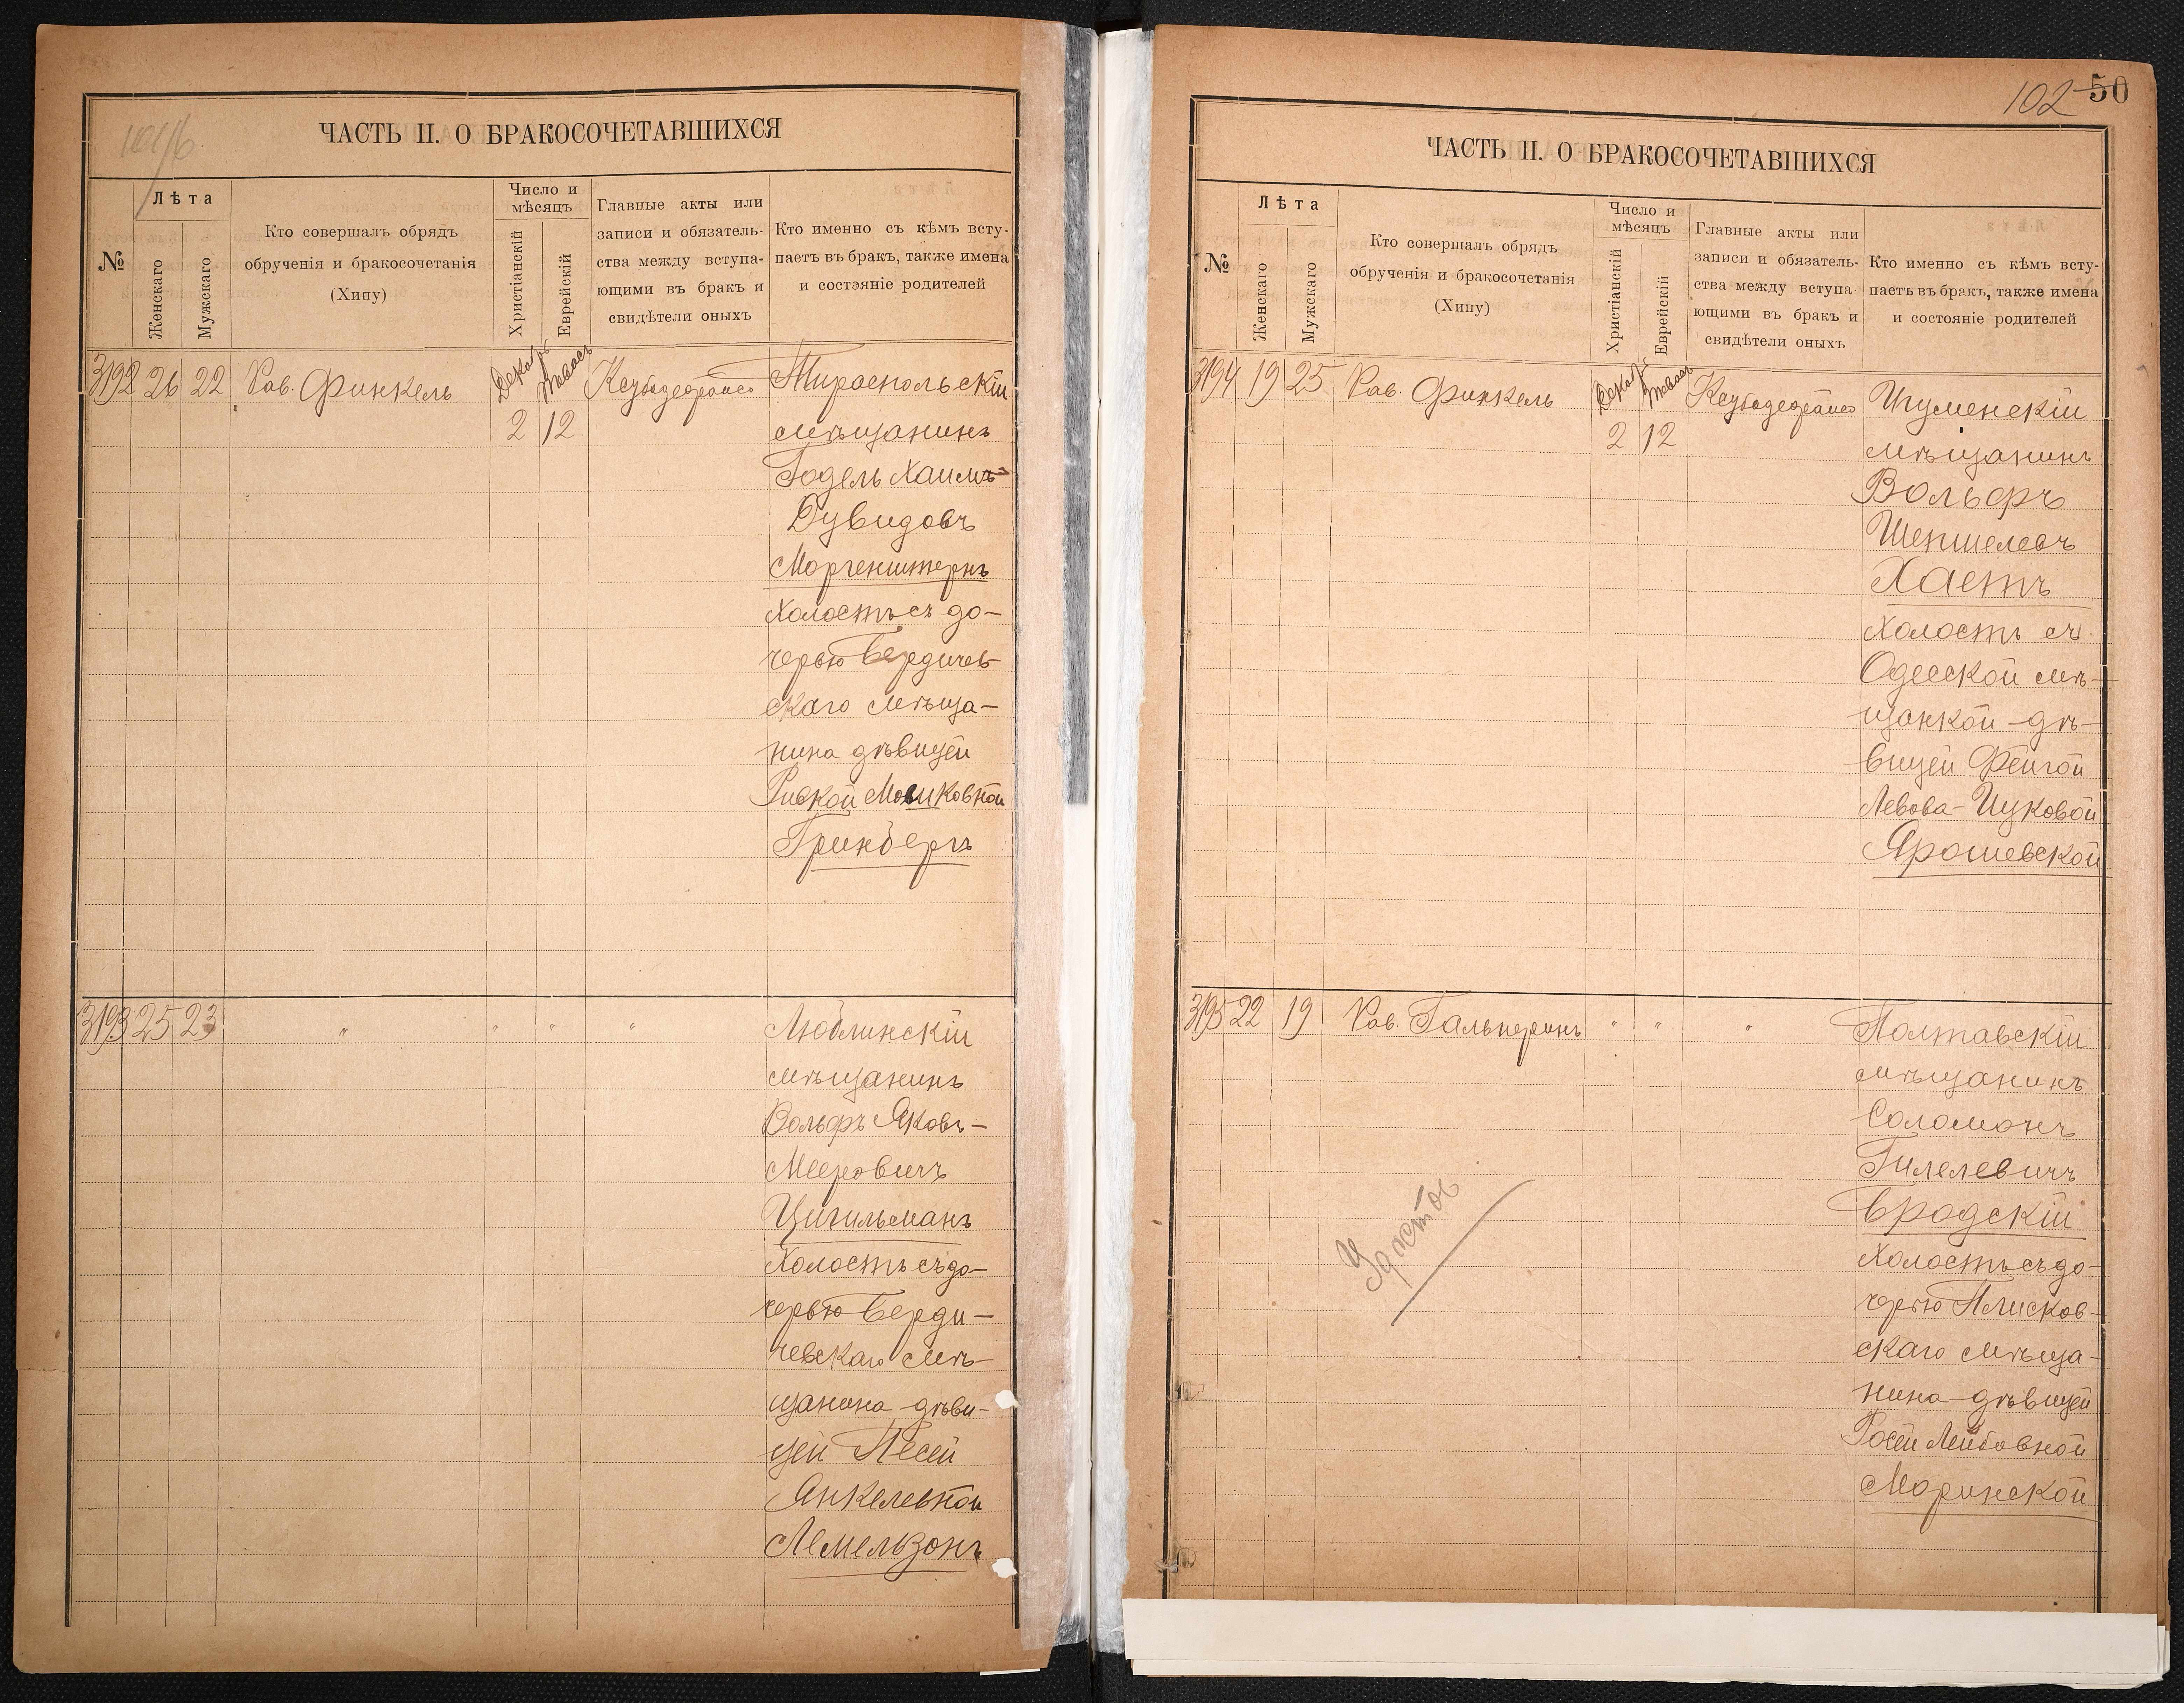 ЧАСТЬ II. О БРАКОСОЧЕТАВШИХСЯ
№
Лѣта
Женскаго
Мужскаго
Кто совершалъ обрядъ
обрученія и бракосочетанія
(Хипу)
Число и
мѣсяцъ
Христіанскій
Еврейскій
Главные акты или
записи и обязатель-
ства между вступа-
ющими въ бракъ и
свидѣтели оныхъ
Кто именно съ кѣмъ всту-
паетъ въ бракъ, также имена
и состояніе родителей
3192 26 22 Рав. Финкель
2 12
Тираспольскій
мѣщанинъ
Годель Хаимъ-
Дувидовъ
Моргенштернъ
холостъ съ до-
черью Бердичев-
скаго мѣща-
нина дѣвицей
Ривкой Мошковной
Гринбергъ
3193 25 23 " " " "
Люблинскій
мѣщанинъ
Вольфъ Яковъ-
Мееровичъ
Цигильманъ
холостъ съ до-
черью Берди-
чевскаго мѣ-
щанина дѣви-
цей Песей
Янкелевной
Лемельзонъ
102 50
ЧАСТЬ II. О БРАКОСОЧЕТАВШИХСЯ
№
Лѣта
Женскаго
Мужскаго
Кто совершалъ обрядъ
обрученія и бракосочетанія
(Хипу)
Число и
мѣсяцъ
Христіанскій
Еврейскій
Главные акты или
записи и обязатель-
ства между вступа
ющими въ бракъ и
свидѣтели оныхъ
Кто именно съ кѣмъ всту-
паетъ въ бракъ, также имена
и состояніе родителей
3194 19 25 Рав. Финкель
2 12
Игуменскій
мѣщанинъ
Вольфъ
Шепшелевъ
Хаетъ
холостъ съ
Одесской мѣ-
щанкой дѣ-
вицей Фейгой
Левова-Ицковой
Ярошевской
3195 22 19 Рав. Гальперинъ " " "
Полтавскій
мѣщанинъ
Соломонъ
Гилелевичъ
Бродскій
холостъ съ до-
черью Плисков-
скаго мѣща-
нина дѣвицей
Росей Лейбовной
Маринской